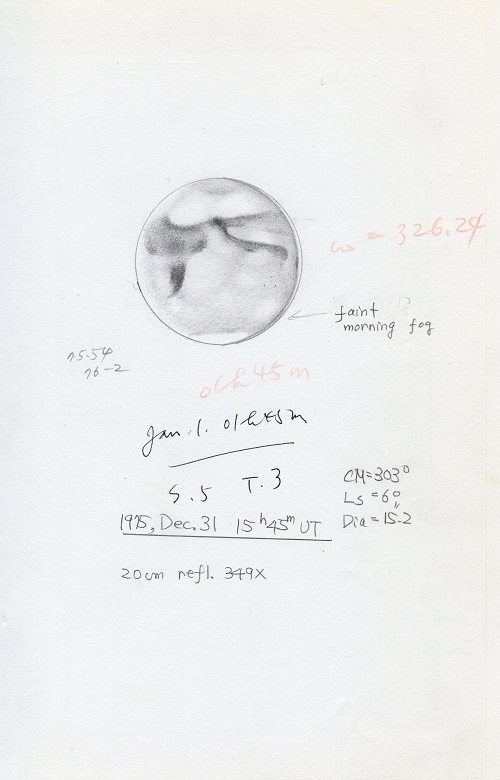 ω = 326.24
faint
morning fog
75-54
76-2
01h45m
Jan. 1. 01h45m
S.5 T.3
CM=303°
Ls = 6°
1975, Dec. 31 15h45m UT
Dia = 15".2
20cm refl. 349X